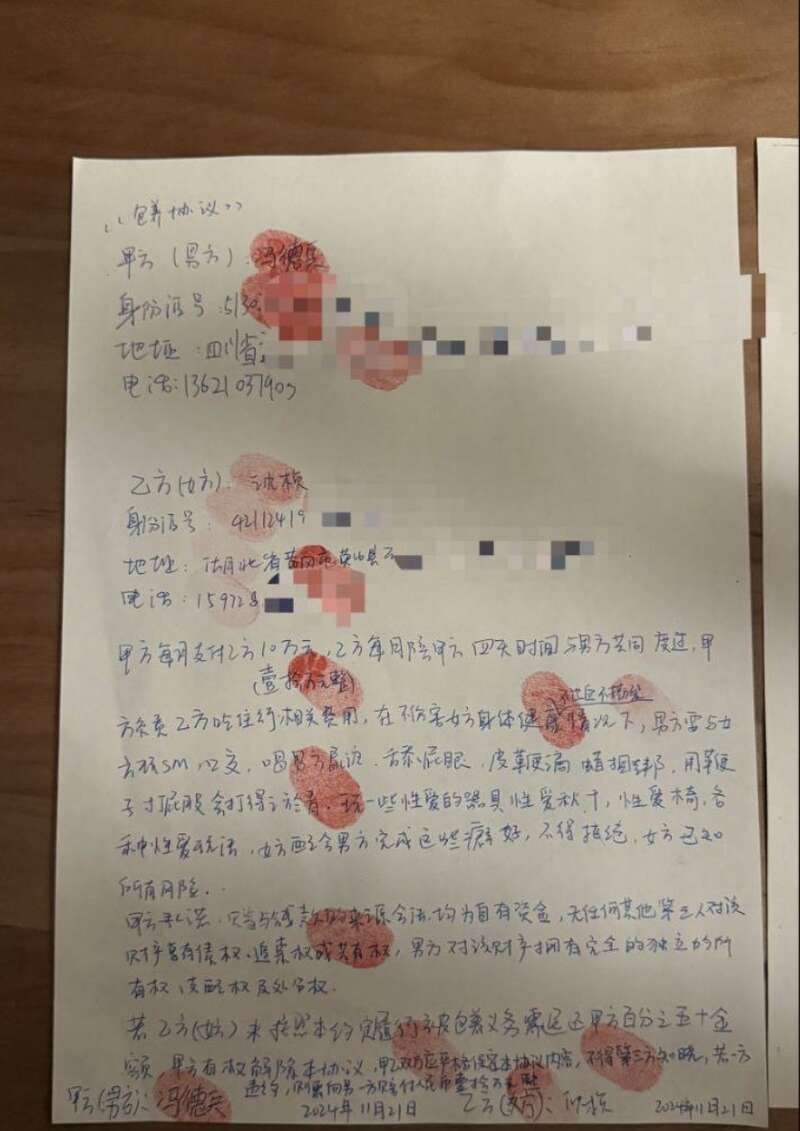 “包养协议”
甲方(男方):冯德兵
身份证号:5130
地址:四川省
电话:1362103790
乙方(女方):
身份证号:42112419
地址:湖北省黄冈市英山县
电话:15972
甲方每月支付乙方10万元,乙方每月陪甲方四天时间与男方共同度过,甲
(壹拾万元整)
方负责乙方吃住行相关费用,在不伤害女方身体健康情况下,男方需与女
方玩SM,口交,喝男方尿液,舔屁眼,皮鞭滴蜡捆绑,用鞭
子打屁股会打得 玩一些性爱的器具性爱秋千,性爱椅,各
种性爱玩法,女方配合男方完成这些癖好,不得拒绝,女方已知
所有风险.
甲方承诺,赠与钱款的来源合法,均为自有资金,无任何其他第三人对该
财产享有债权、追索权或共有权,男方对该财产拥有完全的独立的所
有权、支配权及处分权.
若乙方(女方)未按照本约定履行被包养义务需退还甲方百分之五十金
额,甲方有权解除本协议,甲乙双方应严格保密本协议内容,不得第三方知晓,若一方
违约,则需向另一方赔付人民币壹拾万元整
甲方(男方):冯德兵 2024年11月21日 乙方(女方): 2024年11月21日